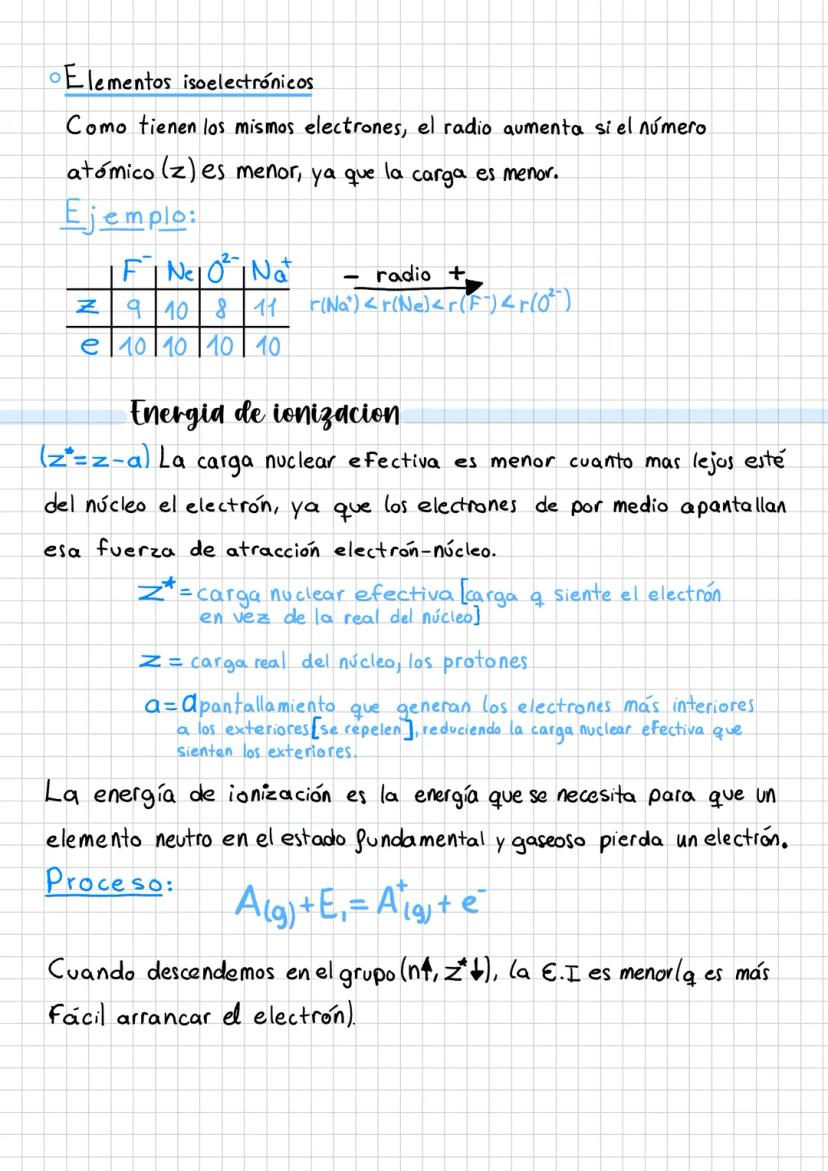 Elementos isoelectrónicos
Como tienen los mismos electrones, el radio aumenta si el número
atómico (z) es menor, ya que la carga es menor.
Ejemplo:
F⁻ Ne O²⁻ Na⁺
z 9 10 8 11
e 10 10 10 10
- radio +
r(Na⁺) < r(Ne) < r(F⁻) < r(O²⁻)
Energia de ionizacion
(z*=z-a) La carga nuclear efectiva es menor cuanto mas lejos esté
del núcleo el electrón, ya que los electrones de por medio apantallan
esa fuerza de atracción electrón-núcleo.
z* = carga nuclear efectiva [carga q siente el electrón
en vez de la real del núcleo]
z = carga real del núcleo, los protones
a = apantallamiento que generan los electrones más interiores
a los exteriores [se repelen], reduciendo la carga nuclear efectiva que
sienten los exteriores.
La energía de ionización es la energía que se necesita para que un
elemento neutro en el estado fundamental y gaseoso pierda un electrón.
Proceso:
A(g) + E₁ = A⁺(g) + e⁻
Cuando descendemos en el grupo (n↑, z*↓), la E.I es menor (q es más
fácil arrancar el electrón).